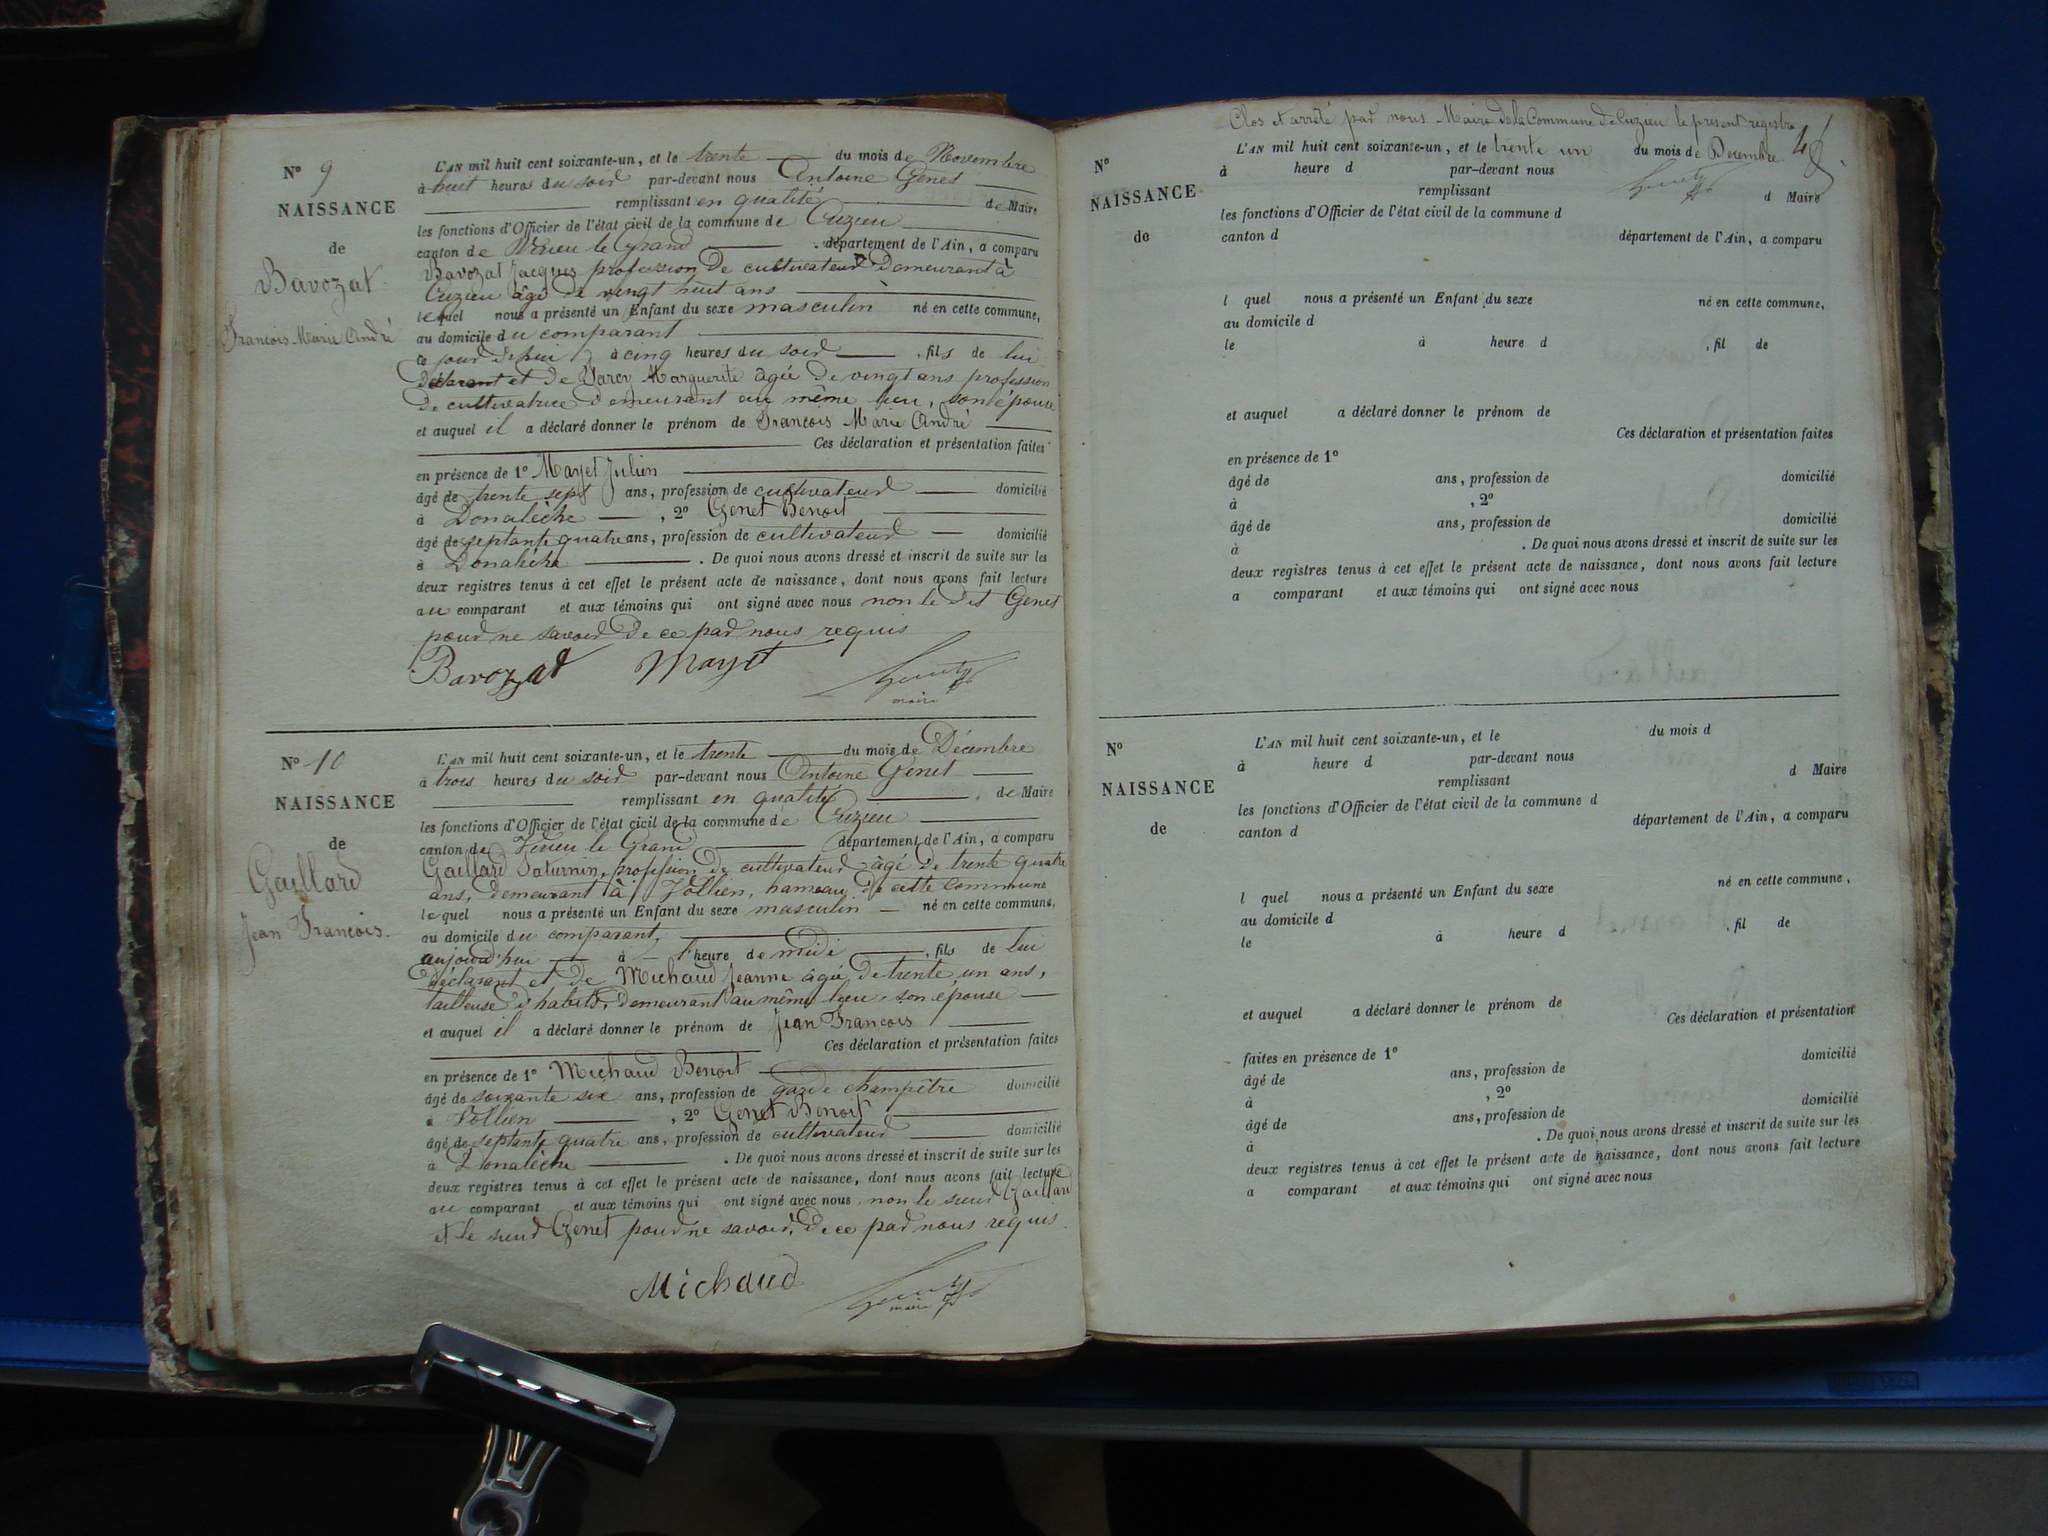 N° 9
NAISSANCE
de
Bavozat
François Marie André
L'AN mil huit cent soixante-un, et le trente du mois de Novembre
à huit heures du soir par-devant nous Antoine Genet
remplissant en qualité de Maire
les fonctions d'Officier de l'état civil de la commune de Cuzieu
canton de Virieu le Grand département de l'Ain, a comparu
Bavozat Jacques profession de cultivateur demeurant à
Cuzieu âgé de vingt huit ans
lequel nous a présenté un Enfant du sexe masculin né en cette commune,
au domicile du comparant
ce jour d'hui à cinq heures du soir, fils de lui
déclarant et de Marguerite âgée de vingt ans profession
de cultivatrice demeurant au même lieu, son épouse
et auquel il a déclaré donner le prénom de François Marie André
Ces déclaration et présentation faites
en présence de 1° Mayet Julien
âgé de trente sept ans, profession de cultivateur domicilié
à Donalèche, 2° Genet Benoit
âgé de septante quatre ans, profession de cultivateur domicilié
à Donalèche. De quoi nous avons dressé et inscrit de suite sur les
deux registres tenus à cet effet le présent acte de naissance, dont nous avons fait lecture
au comparant et aux témoins qui ont signé avec nous non le dit Genet
pour ne savoir de ce par nous requis
Bavozat Mayet
maire
N° 10
NAISSANCE
de
Gaillard
Jean François.
L'AN mil huit cent soixante-un, et le trente du mois de Décembre
à trois heures du soir par-devant nous Antoine Genet
remplissant en qualité de Maire
les fonctions d'Officier de l'état civil de la commune de Cuzieu
canton de Virieu le Grand département de l'Ain, a comparu
Gaillard Saturnin, profession de cultivateur âgé de trente quatre
ans, demeurant à Vollien, hameau de cette commune
lequel nous a présenté un Enfant du sexe masculin né en cette commune,
au domicile du comparant,
aujourd'hui à l'heure de midi, fils de lui
déclarant et de Michaud Jeanne âgée de trente un ans,
tailleuse d'habits, demeurant au même lieu, son épouse
et auquel il a déclaré donner le prénom de Jean François
Ces déclaration et présentation faites
en présence de 1° Michaud Benoit
âgé de soixante six ans, profession de garde champêtre domicilié
à Vollien, 2° Genet Benoit
âgé de septante quatre ans, profession de cultivateur domicilié
à Donalèche. De quoi nous avons dressé et inscrit de suite sur les
deux registres tenus à cet effet le présent acte de naissance, dont nous avons fait lecture
au comparant et aux témoins qui ont signé avec nous non le sieur Gaillard
et le sieur Genet pour ne savoir, de ce par nous requis.
Michaud
maire
Clos et arrêté par nous Maire de la Commune de Cuzieu le présent registre
N°
NAISSANCE
de
L'AN mil huit cent soixante-un, et le trente un du mois de Décembre
à heure d par-devant nous
remplissant d Maire
les fonctions d'Officier de l'état civil de la commune d
canton d département de l'Ain, a comparu
l quel nous a présenté un Enfant du sexe né en cette commune,
au domicile d
le à heure d, fil de
et auquel a déclaré donner le prénom de
Ces déclaration et présentation faites
en présence de 1°
âgé de ans, profession de domicilié
à, 2°
âgé de ans, profession de domicilié
à. De quoi nous avons dressé et inscrit de suite sur les
deux registres tenus à cet effet le présent acte de naissance, dont nous avons fait lecture
a comparant et aux témoins qui ont signé avec nous
N°
NAISSANCE
de
L'AN mil huit cent soixante-un, et le du mois d
à heure d par-devant nous
remplissant d Maire
les fonctions d'Officier de l'état civil de la commune d
canton d département de l'Ain, a comparu
l quel nous a présenté un Enfant du sexe né en cette commune,
au domicile d
le à heure d, fil de
et auquel a déclaré donner le prénom de
Ces déclaration et présentation
faites en présence de 1°
âgé de ans, profession de domicilié
à, 2°
âgé de ans, profession de domicilié
à. De quoi nous avons dressé et inscrit de suite sur les
deux registres tenus à cet effet le présent acte de naissance, dont nous avons fait lecture
a comparant et aux témoins qui ont signé avec nous